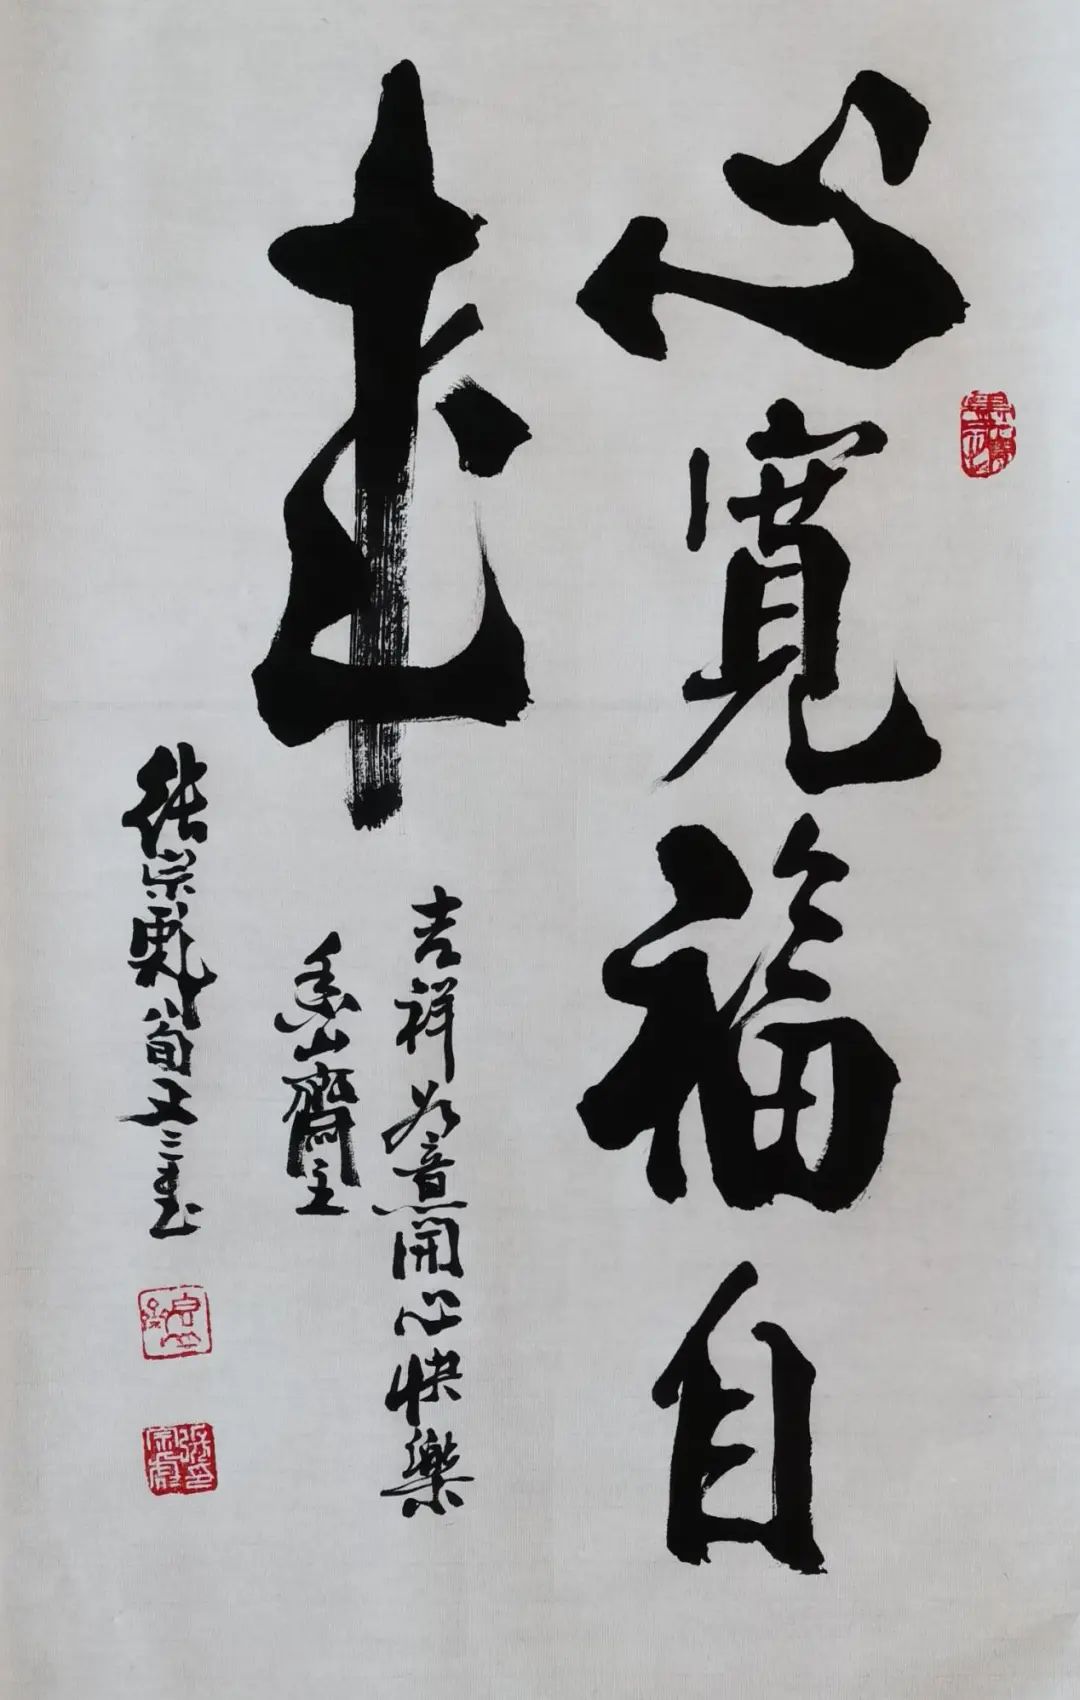 心寬福自
來
吉祥如意開心快樂
香山齋主
張宗 八旬又三書